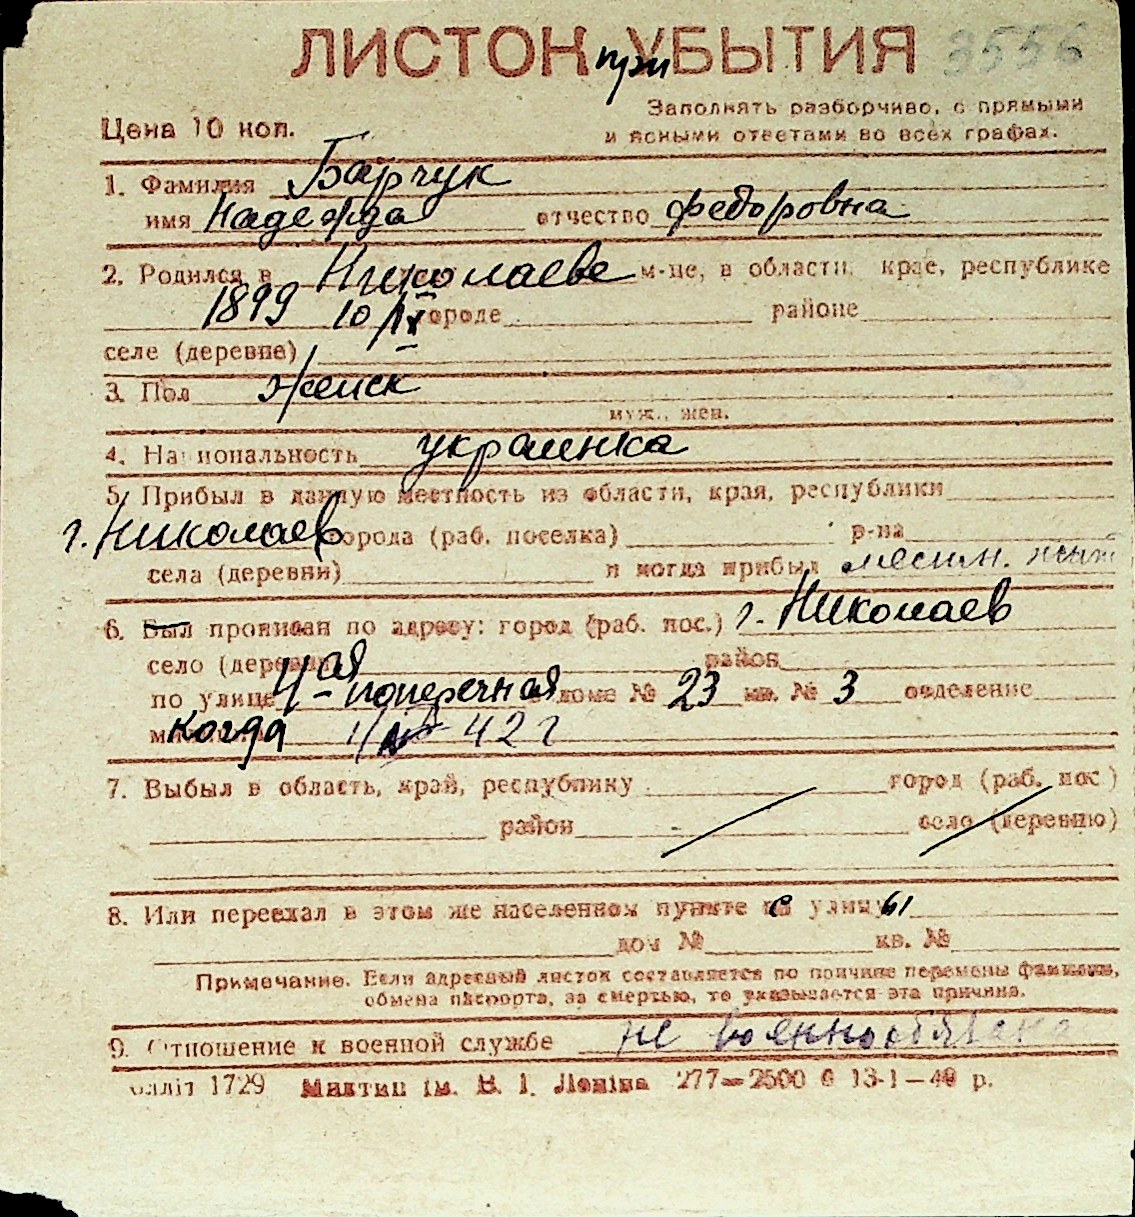 ЛИСТОК при УБЫТИЯ 3556
Заполнять разборчиво, с прямыми
Цена 10 коп. и ясными ответами во всех графах.
1. Фамилия Барчук
имя Надежда отчество Федоровна
2. Родился в Николаеве м-це, в области, крае, республике
1899 10/IX городе районе
селе (деревне)
3. Пол женск
муж., жен.
4. Национальность украинка
5. Прибыл в данную местность из области, края, республики
г. Николаев города (раб. поселка) р-на
села (деревни) и когда прибыл местн. жит
6. Был прописан по адресу: город (раб. пос.) г. Николаев
село (деревня) район
по улице 4-ая поперечная дом № 23 кв. № 3 отделение
когда 42 г
7. Выбыл в область, край, республику город (раб. пос)
район село (деревню)
8. Или переехал в этом же населенном пункте с улицы
дом № кв. №
Примечание. Если адресный листок составляется по причине перемены фамилии,
обмена паспорта, за смертью, то указывается эта причина.
9. Отношение к военной службе не военнообязана
блліт 1729 Миктип ім. В. І. Леніна 277—2500 6 13-1—40 р.